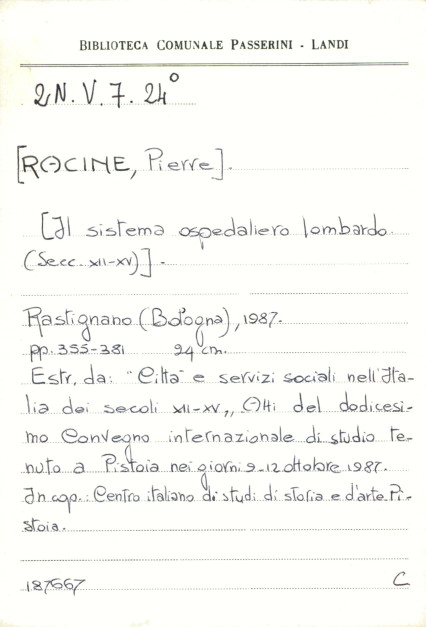 BIBLIOTECA COMUNALE PASSERINI - LANDI
2N. V. 7. 24°
[RACINE, Pierre].
[Il sistema ospedaliero lombardo
(Secc. XII-XV)].
Rastignano (Bologna), 1987.
pp. 355-381 24 cm.
Estr. da: "Città e servizi sociali nell'Ita-
lia dei secoli XII-XV", Atti del dodicesi-
mo Convegno internazionale di studio te-
nuto a Pistoia nei giorni 9-12 ottobre 1987.
In cop.: Centro italiano di studi di storia e d'arte. Pi-
stoia.
187667 C